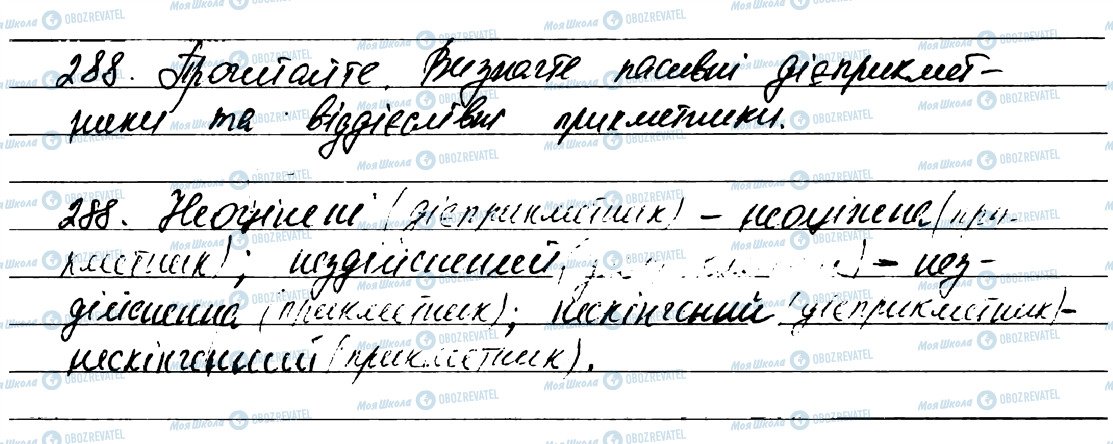 288. Прочитайте. Визначте пасивні дієприкмет-
ники та віддієслівні прикметники.
288. Неоцінені (дієприкметник) - неоцінена (при-
кметник); нездійснений - нез-
дійсненна (прикметник); нескінчений (дієприкметник) -
нескінченний (прикметник).